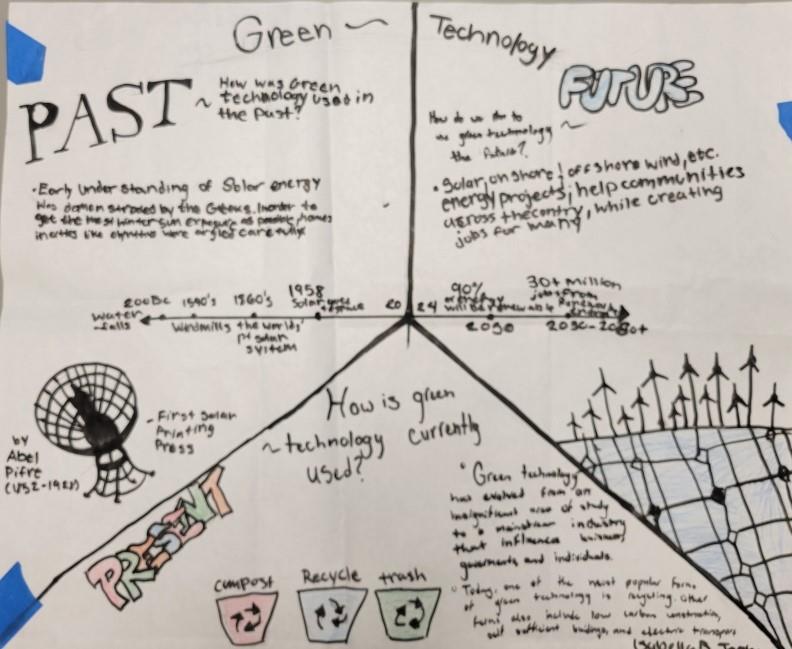 Green ~ Technology
PAST
~ How was Green
technology used in
the past?
• Early understanding of Solar energy
was demonstrated by the Greeks. Inorder to
get the most winter sun exposure as possible, homes
in cities like were angled carefully
FUTURE
How do we plan to
use green technology ~
the future?
• Solar, on shore / offshore wind, etc.
energy projects; help communities
across the contry, while creating
jobs for many
200BC
water
falls
1590's
windmills
1860's
the worlds'
1st solar
system
1958
Solar
2024
90%
of energy
will be renewable
2050
30+ million
jobs from
Renewable
energy
2030-2050+
by
Abel
Pifre
(1852-1928)
- First Solar
Printing
Press
PRESENT
How is green
~ technology currently
used?
compost
Recycle
trash
• Green technology
has evolved from an
insignificant area of study
to a mainstream industry
that influence business,
goverments, and individuals.
• Today, one of the most popular forms
of green technology is recycling. Other
forms also include low carbon construction,
self sufficient buildings, and electric transport
Isabella D.